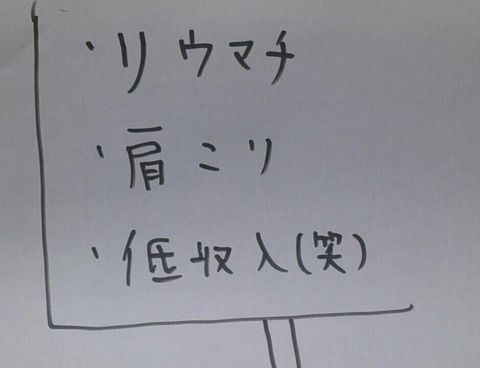 ・リウマチ
・肩こり
・低収入(笑)